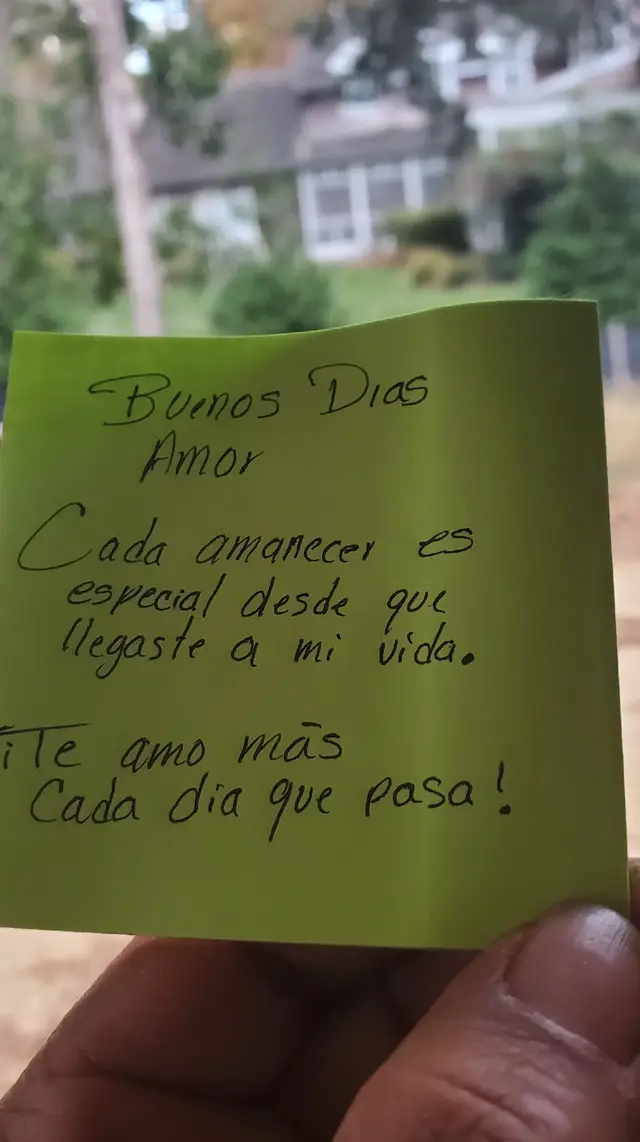 Buenos Dias
Amor
Cada amanecer es
especial desde que
llegaste a mi vida.
¡Te amo más
Cada dia que pasa!